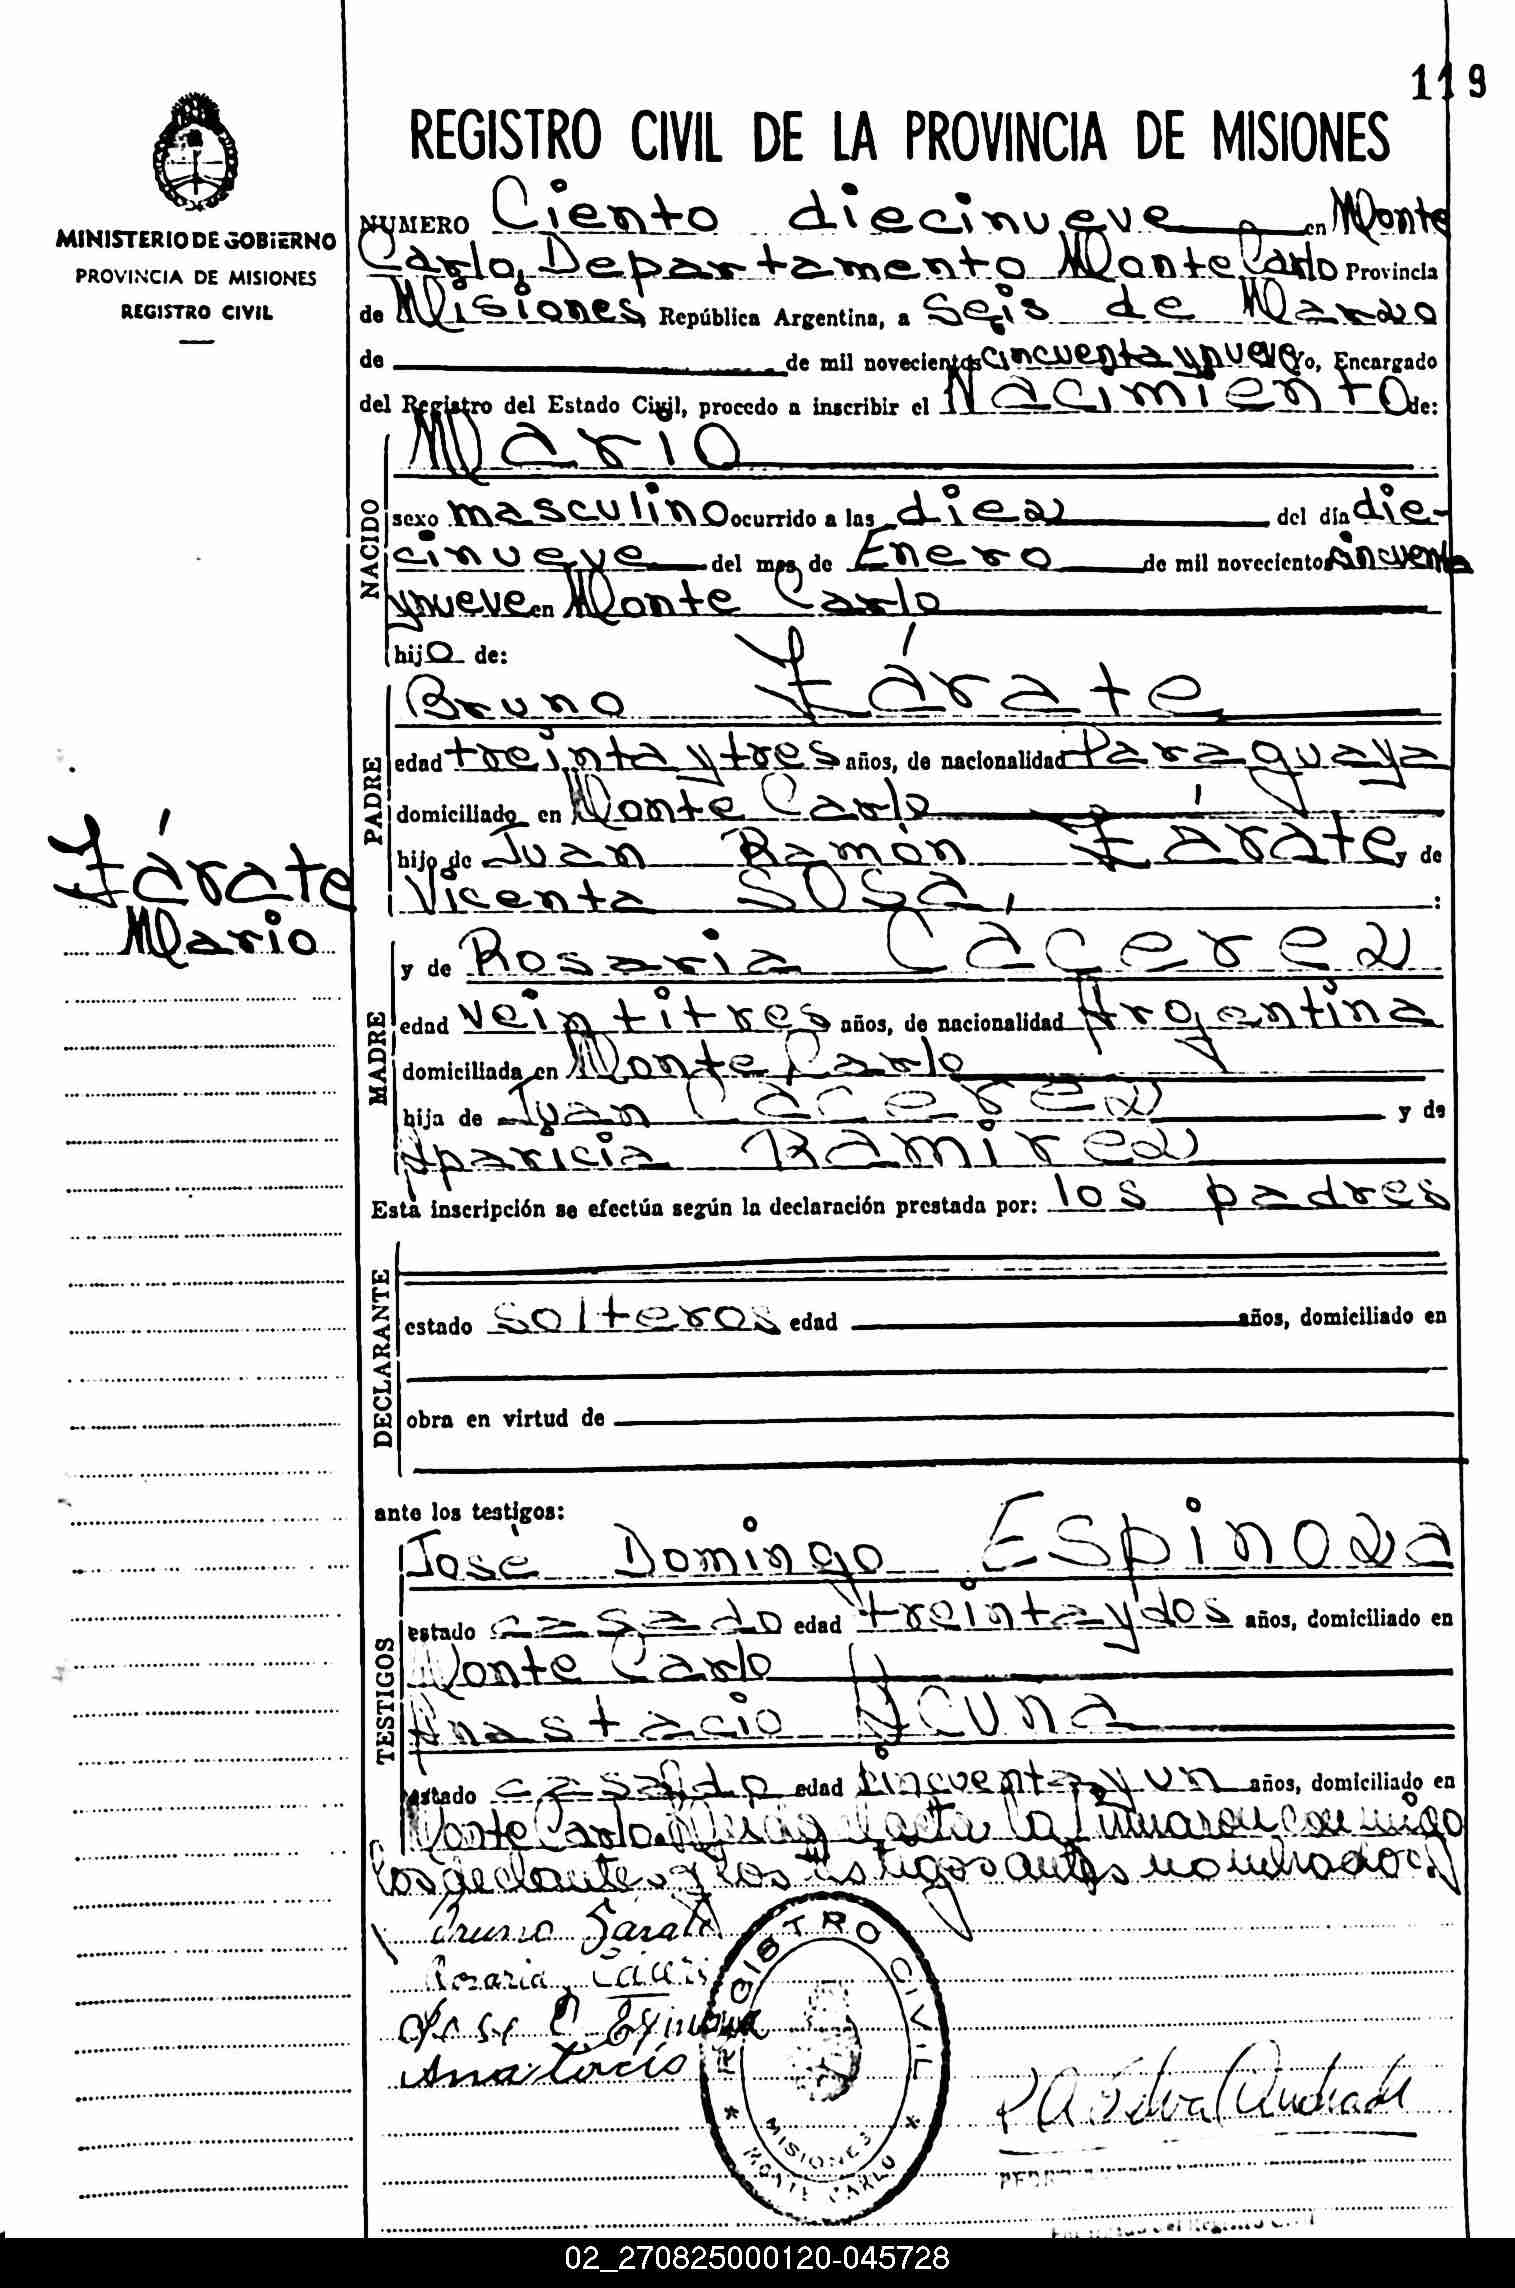 119
MINISTERIO DE GOBIERNO
PROVINCIA DE MISIONES
REGISTRO CIVIL
Zárate
Mario
REGISTRO CIVIL DE LA PROVINCIA DE MISIONES
NUMERO Ciento diecinueve en Monte
Carlo, Departamento Monte Carlo Provincia
de Misiones, República Argentina, a Seis de Marzo
de de mil novecientos cincuenta y nueve Yo, Encargado
del Registro del Estado Civil, procedo a inscribir el Nacimiento de:
NACIDO
Mario
sexo masculino ocurrido a las diez del día die-
cinueve del mes de Enero de mil novecientos cincuenta
y nueve en Monte Carlo
hijo de:
PADRE
Bruno Zárate
edad treinta y tres años, de nacionalidad Paraguaya
domiciliado en Monte Carlo
hijo de Juan Ramón Zárate y de
Vicenta Sosa, :
MADRE
y de Rosaria Cacerez
edad veintitres años, de nacionalidad Argentina
domiciliada en Monte Carlo
hija de Juan Cacerez y de
Aparicia Ramirez
Esta inscripción se efectúa según la declaración prestada por: los padres
DECLARANTE
estado solteros edad años, domiciliado en
obra en virtud de
ante los testigos:
TESTIGOS
José Domingo Espinoza
estado casado edad treinta y dos años, domiciliado en
Monte Carlo
Anastacio Acuna
estado casado edad cincuenta y un años, domiciliado en
Monte Carlo. el acta la firmaron conmigo
los declarantes y los testigos antes nombrados
Bruno Zarate
Rosaria
Jose D Espinoza
REGISTRO CIVIL
MISIONES
MONTE CARLO
P A Silva Andrade
02_270825000120-045728